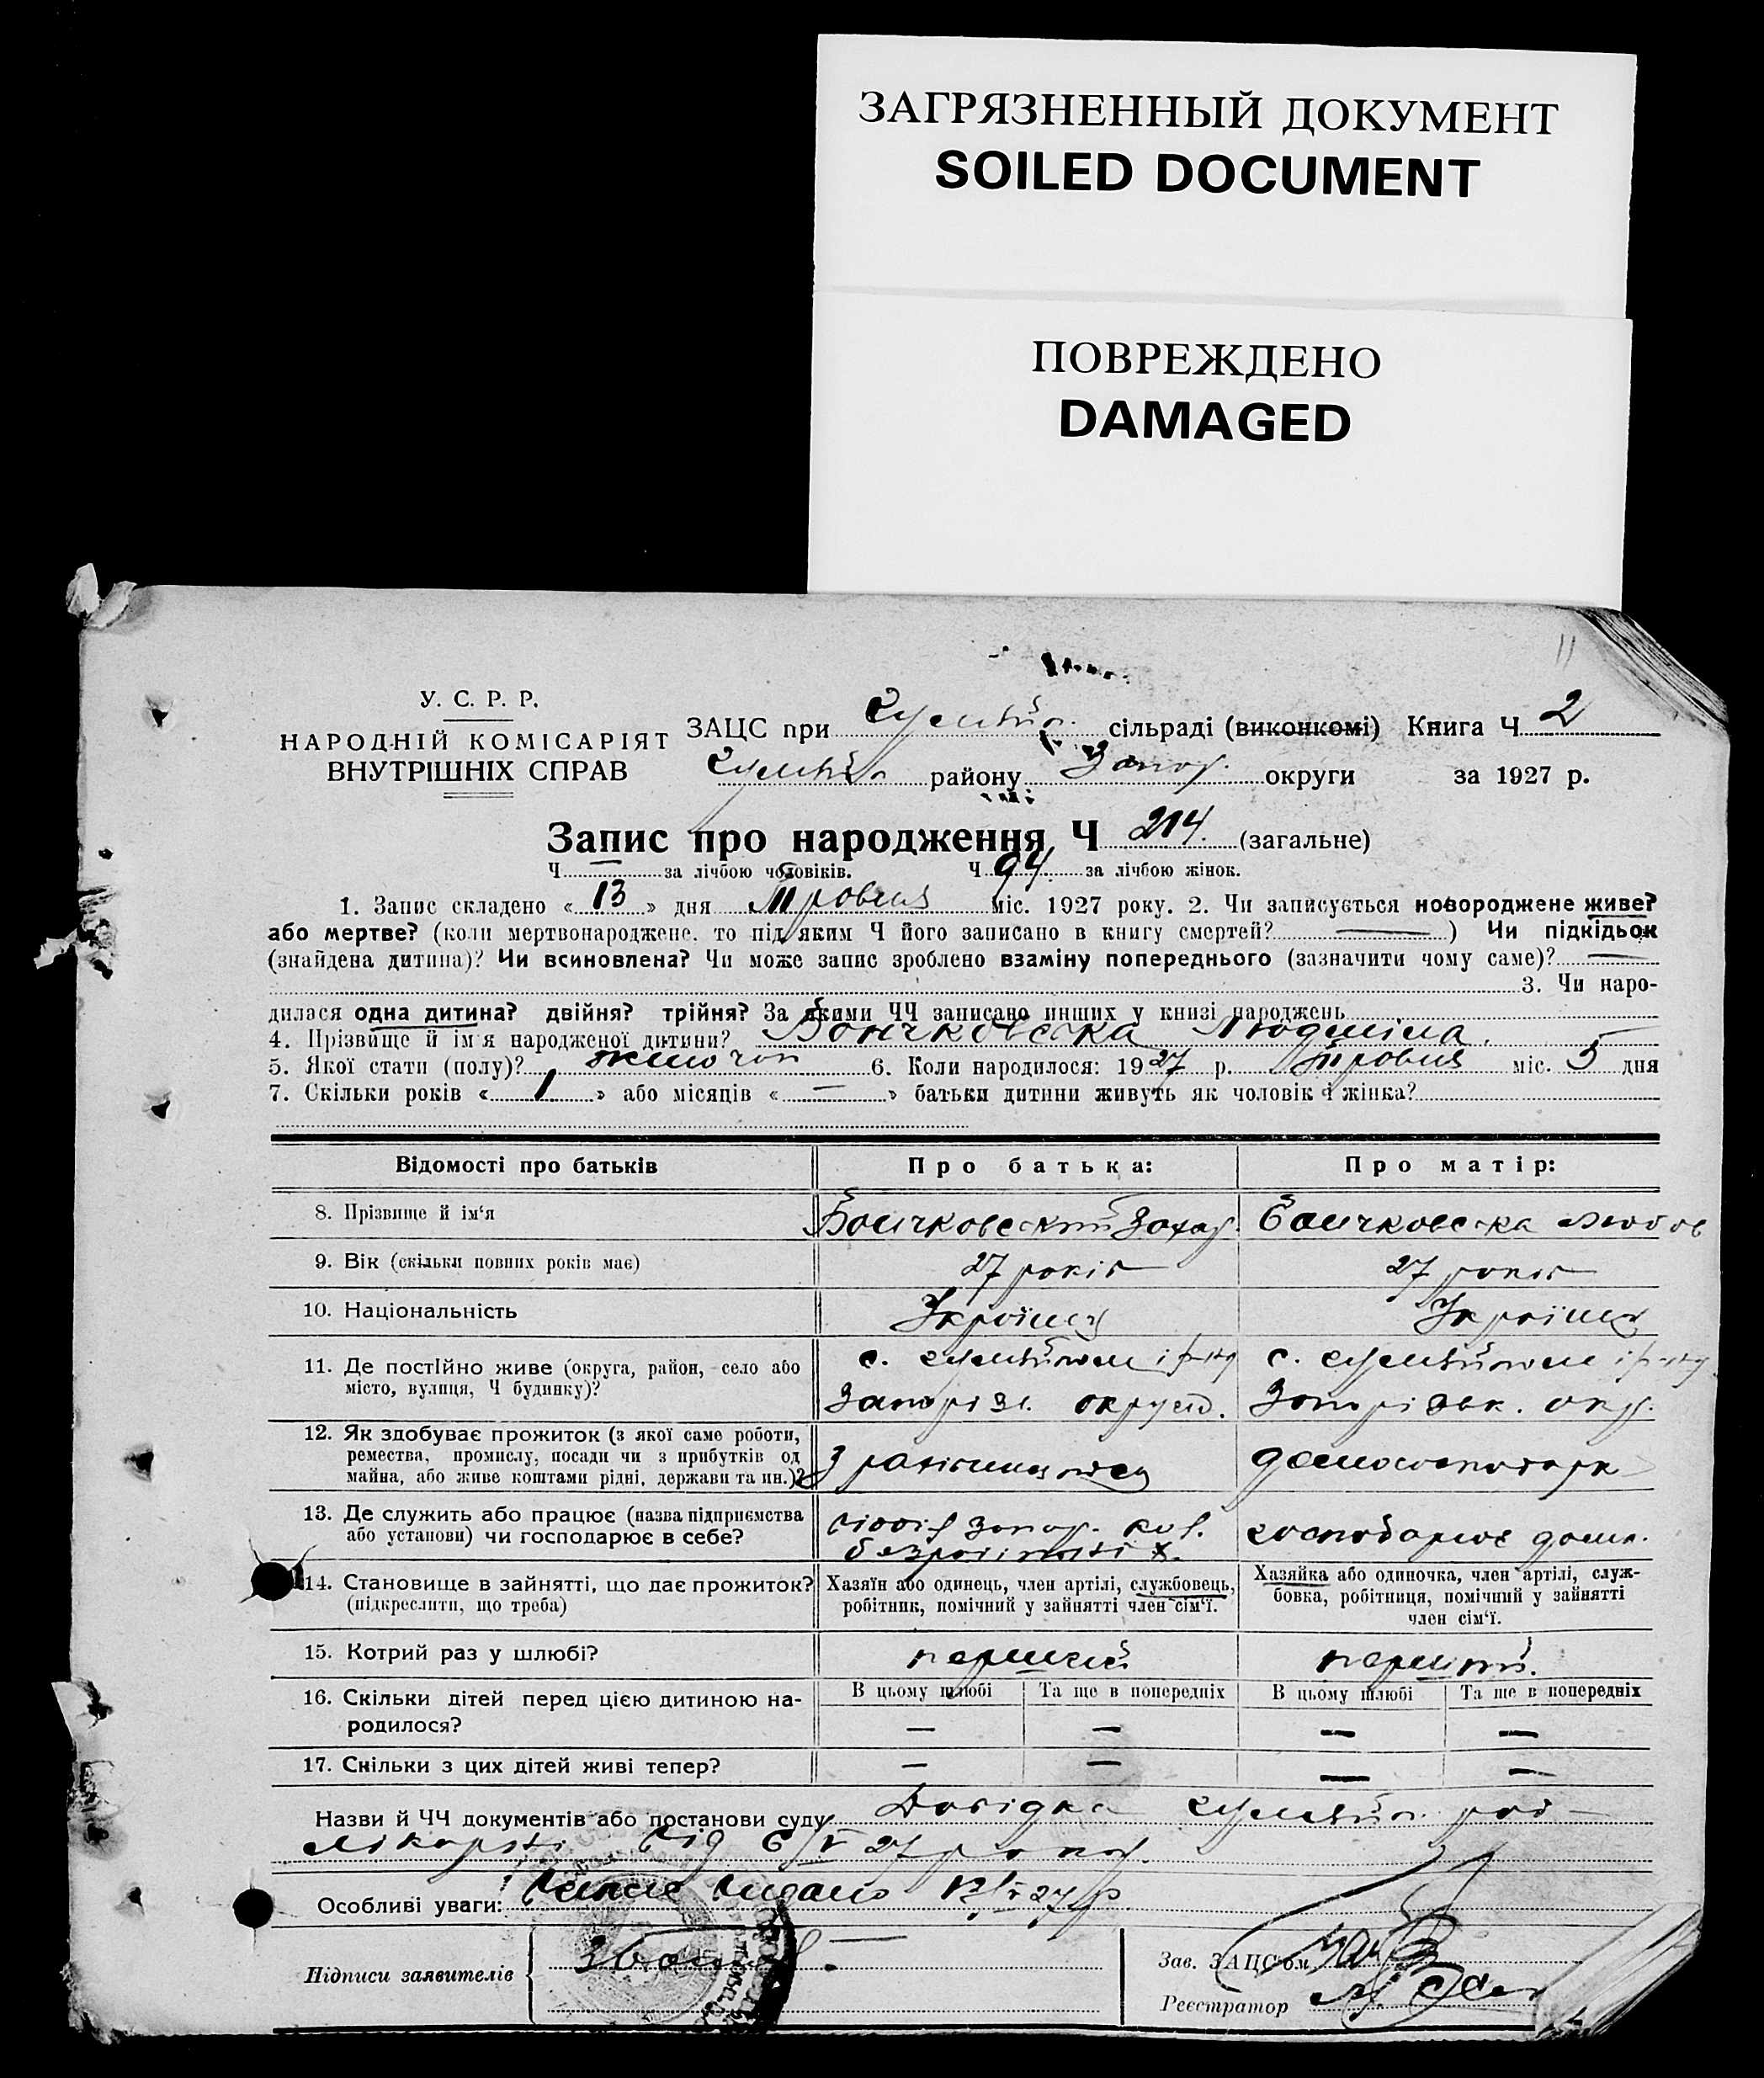 ЗАГРЯЗНЕННЫЙ ДОКУМЕНТ
SOILED DOCUMENT
ПОВРЕЖДЕНО
DAMAGED
11
У. С. Р. Р.
НАРОДНІЙ КОМІСАРІЯТ
ВНУТРІШНІХ СПРАВ
ЗАЦС при сільраді (виконкомі) Книга Ч 2
району Запор. округи за 1927 р.
Запис про народження Ч 214. (загальне)
Ч — за лічбою чоловіків. Ч 94. за лічбою жінок.
1. Запис складено « 13 » дня Травня міс. 1927 року. 2. Чи записується новороджене живе?
або мертве? (коли мертвонароджене, то під яким Ч його записано в книгу смертей? — ) Чи підкідьок
(знайдена дитина)? Чи всиновлена? Чи може запис зроблено взаміну попереднього (зазначити чому саме)? —
3. Чи наро-
дилася одна дитина? двійня? трійня? За якими ЧЧ записано инших у книзі народжень
4. Прізвище й ім'я народженої дитини? Бончковська Людміла.
5. Якої стати (полу)? жіночої 6. Коли народилося: 1927 р. Травня міс. 5 дня
7. Скільки років « 1 » або місяців « — » батьки дитини живуть як чоловік і жінка?
Відомості про батьків
Про батька:
Про матір:
8. Прізвище й ім'я
Бончковський Захар.
Бончковська Любов
9. Вік (скільки повних років має)
27 років
27 років
10. Національність
Українец
Українка
11. Де постійно живе (округа, район, село або
місто, вулиця, Ч будинку)?
с. і р-ну
Запорізь. округи.
с. і р-ну
Запорізьк. окр.
12. Як здобуває прожиток (з якої саме роботи,
ремества, промислу, посади чи з прибутків од
майна, або живе коштами рідні, держави та ин.)?
З
домогосподарк
13. Де служить або працює (назва підприємства
або установи) чи господарює в себе?
Запор.
безробітності
господарює дома.
14. Становище в зайнятті, що дає прожиток?
(підкреслити, що треба)
Хазяїн або одинець, член артілі, службовець,
робітник, помічний у зайнятті член сім'ї.
Хазяйка або одиночка, член артілі, служ-
бовка, робітниця, помічний у зайнятті
член сім'ї.
15. Котрий раз у шлюбі?
перший
перший.
16. Скільки дітей перед цією дитиною на-
родилося?
В цьому шлюбі Та ще в попередніх
В цьому шлюбі Та ще в попередніх
— — — —
17. Скільки з цих дітей живі тепер?
— — — —
Назви й ЧЧ документів або постанови суду Довідка рай-
лікарні від 6/V 27 року.
Особливі уваги: видано 27 р
Підписи заявителів
Зав. ЗАЦС'ом
Реєстратор